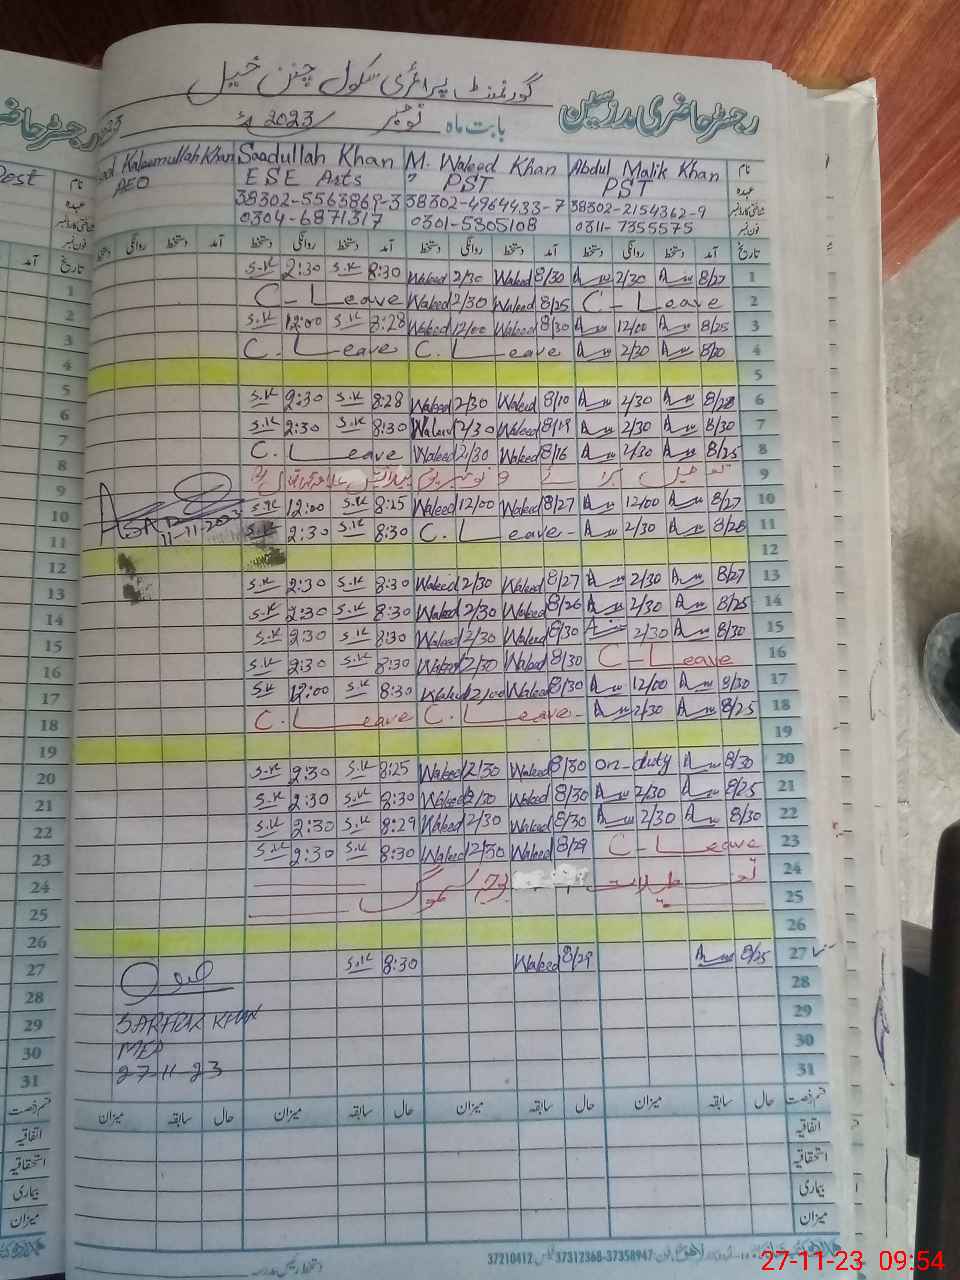 گورنمنٹ پرائمری سکول چنن خیل
رجسٹر حاضری مدرسین
بابت ماہ نومبر 2023ء
Post
Kaleemullah Khan Saadullah Khan M. Waleed Khan Abdul Malik Khan نام
AEO ESE Arts PST PST عہدہ
38302-5563869-3 38302-4964433-7 38302-2154362-9 شناختی کارڈ نمبر
0304-6871317 0301-5805108 0311-7355575 فون نمبر
دستخط روانگی دستخط آمد دستخط روانگی دستخط آمد دستخط روانگی دستخط آمد دستخط روانگی دستخط آمد تاریخ
S.K 2:30 S.K 8:30 Waleed 2/30 Waleed 8/30 2/30 8/27 1
C-Leave Waleed 2/30 Waleed 8/25 C-Leave 2
S.K 12:00 S.K 8:28 Waleed 12/00 Waleed 8/30 12/00 8/25 3
C. Leave C. Leave 2/30 8/20 4
5
S.K 2:30 S.K 8:28 Waleed 2/30 Waleed 8/10 2/30 8/28 6
S.K 2:30 S.K 8:30 Waleed 2/30 Waleed 8/19 2/30 8/30 7
C. Leave Waleed 2/30 Waleed 8/16 2/30 8/25 8
تعطیل برائے 9 نومبر یوم 9
S.K 12:00 S.K 8:25 Waleed 12/00 Waleed 8/27 12/00 8/27 10
11-11-2023 S.K 2:30 S.K 8:30 C. Leave 2/30 8/28 11
12
S.K 2:30 S.K 8:30 Waleed 2/30 Waleed 8/27 2/30 8/27 13
S.K 2:30 S.K 8:30 Waleed 2/30 Waleed 8/26 2/30 8/25 14
S.K 2:30 S.K 8:30 Waleed 2/30 Waleed 8/30 2/30 8/30 15
S.K 2:30 S.K 8:30 Waleed 2/30 Waleed 8/30 C-Leave 16
S.K 12:00 S.K 8:30 Waleed 12/00 Waleed 8/30 12/00 8/30 17
C. Leave C. Leave 2/30 8/25 18
19
S.K 2:30 S.K 8:25 Waleed 2/30 Waleed 8/30 on-duty 8/30 20
S.K 2:30 S.K 8:30 Waleed 2/30 Waleed 8/30 2/30 8/25 21
S.K 2:30 S.K 8:29 Waleed 2/30 Waleed 8/30 2/30 8/30 22
S.K 2:30 S.K 8:30 Waleed 2/30 Waleed 8/29 C-Leave 23
تعطیلات بوجہ سموگ 24
25
26
S.K 8:30 Waleed 8/29 8/25 27
28
SARFRAZ KHAN 29
MEA 30
27-11-23 31
میزان سابقہ حال میزان سابقہ حال میزان سابقہ حال میزان سابقہ حال قسم رخصت
اتفاقیہ
استحقاقیہ
بیماری
میزان
دستخط رئیس مدرسہ
37210412 37312368-37358947
27-11-23 09:54